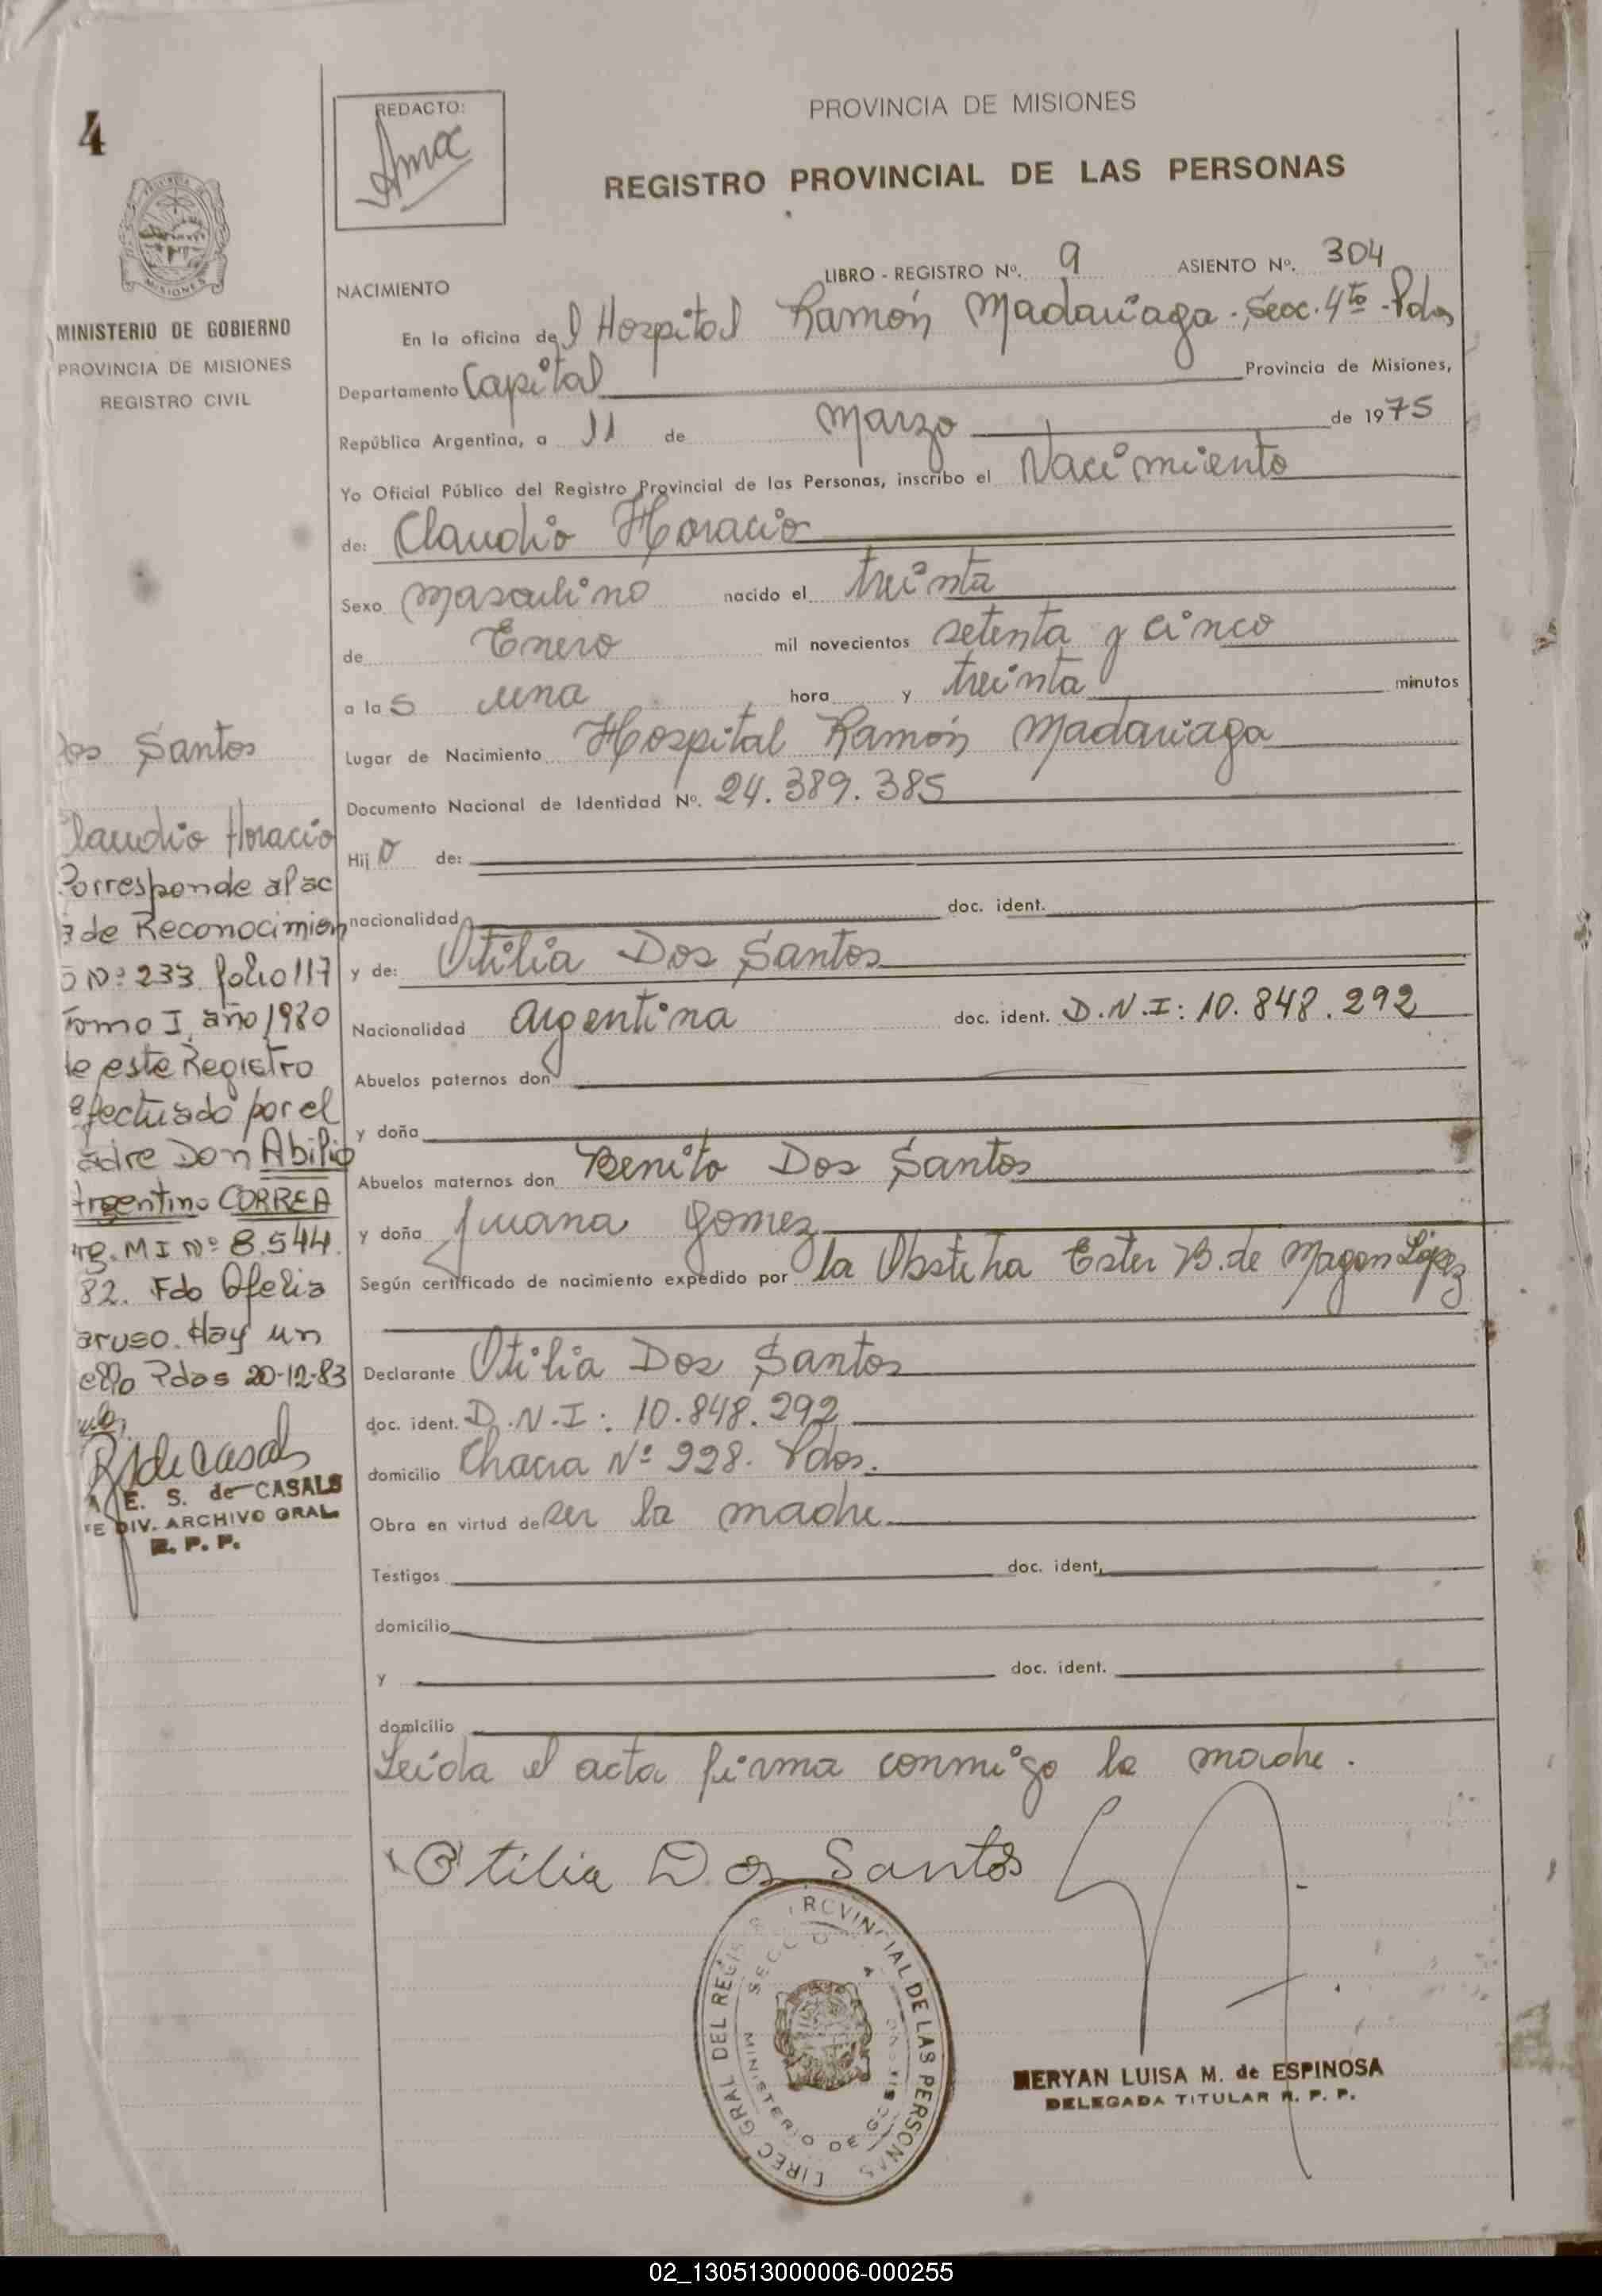 4
REDACTO:
PROVINCIA DE MISIONES
REGISTRO PROVINCIAL DE LAS PERSONAS
MISIONES
MINISTERIO DE GOBIERNO
PROVINCIA DE MISIONES
REGISTRO CIVIL
LIBRO - REGISTRO Nº. 9 ASIENTO Nº. 304
NACIMIENTO
En la oficina del Hospital Ramón Madariaga - Secc. 4ta - Pdas
Departamento Capital Provincia de Misiones,
República Argentina, a 11 de Marzo de 1975
Yo Oficial Público del Registro Provincial de las Personas, inscribo el Nacimiento
de: Claudio Horacio
Sexo masculino nacido el treinta
de Enero mil novecientos setenta y cinco
a las una hora y treinta minutos
Lugar de Nacimiento Hospital Ramón Madariaga
Documento Nacional de Identidad Nº. 24.389.385
Hijo de:
nacionalidad doc. ident.
y de: Otilia Dos Santos
Nacionalidad Argentina doc. ident. D.N.I: 10.848.292
Abuelos paternos don
y doña
Abuelos maternos don Benito Dos Santos
y doña Juana Gomez
Según certificado de nacimiento expedido por la Obstetra Ester B. de Magan López
Declarante Otilia Dos Santos
doc. ident. D.N.I: 10.848.292
domicilio Chacra Nº 228. Pdas.
Obra en virtud de ser la madre
Testigos doc. ident.
domicilio
y doc. ident.
domicilio
Leída el acta firma conmigo la madre.
Otilia Dos Santos
dos Santos
Claudio Horacio
Corresponde al ac
a de Reconocimien
o Nº 233 folio 117
Tomo I, año 1980
de este Registro
efectuado por el
adre Don Abilio
Argentino CORREA
rg. M I Nº 8.544.
82. Fdo Ofelia
aruso. Hay un
ello Pdas 20-12-83
E. S. de CASALS
E DIV. ARCHIVO GRAL.
R. P. P.
DIREC GRAL DEL REGIS ROVINCIAL DE LAS PERSONAS
MINISTERIO DE GOBIERNO
MERYAN LUISA M. de ESPINOSA
DELEGADA TITULAR R. P. P.
02_130513000006-000255